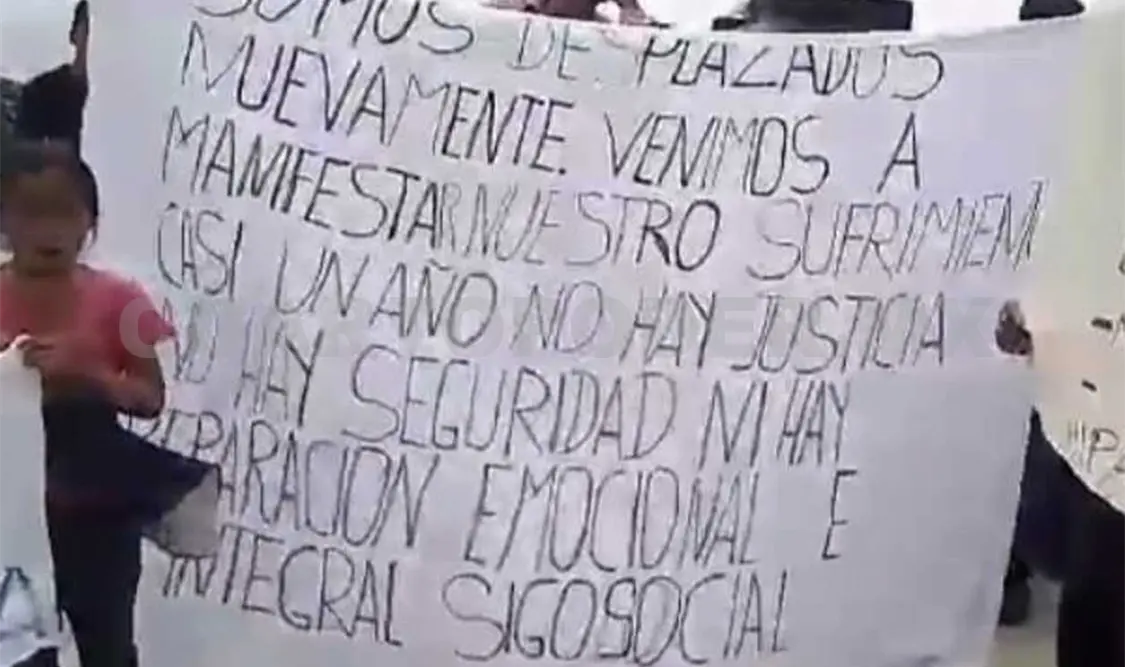 SOMOS DE.PLAZADOS
NUEVAMENTE. VENIMOS A
MANIFESTAR NUESTRO SUFRIMIEN
CASI UN AÑO NO HAY JUSTICIA
NO HAY SEGURIDAD NI HAY
REPARACION EMOCIONAL E
INTEGRAL SIGOSOCIAL